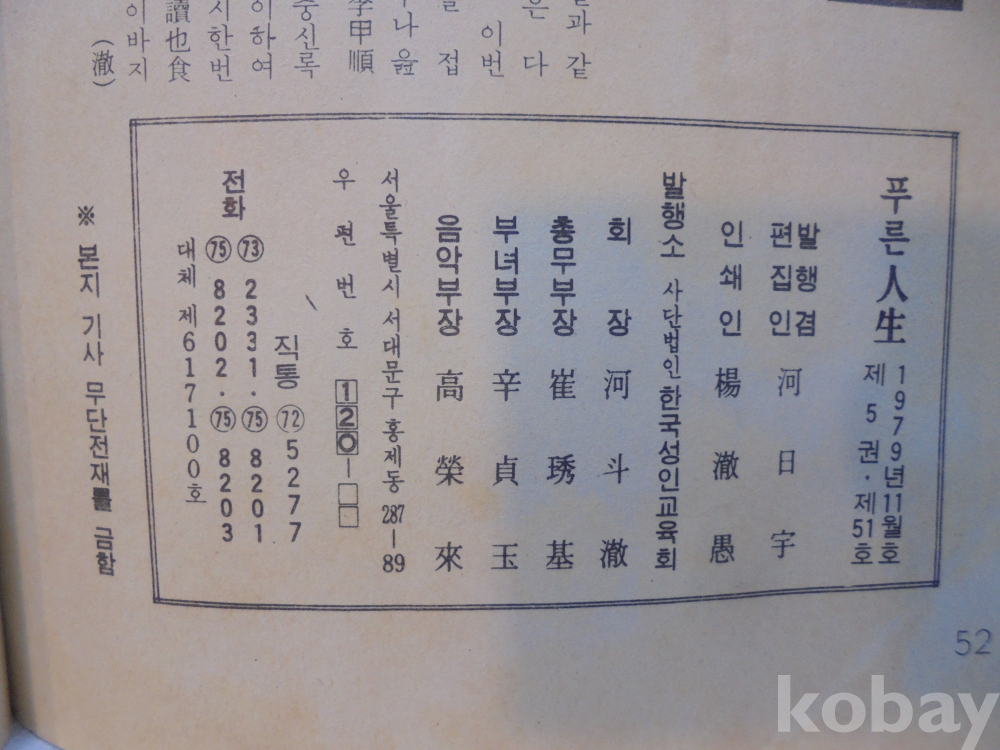 과 같
은 다
이번
을 접
나 읊
李甲順
중신록
이하여
시한번
讀也食
이바지
(澈)
푸른 人生
1979년 11월호
제 5 권 · 제 51 호
발행겸
편집인 河日宇
인쇄인 楊澈愚
발행소 사단법인 한국성인교육회
회장 河斗澈
총무부장 崔琇基
부녀부장 辛貞玉
음악부장 高榮來
서울특별시 서대문구 홍제동 287-89
우편번호 120-□□
직통 72 5277
전화 73 2331 · 75 8201
75 8202 · 75 8203
대체 제 617100호
※ 본지 기사 무단전재를 금함
52
kobay